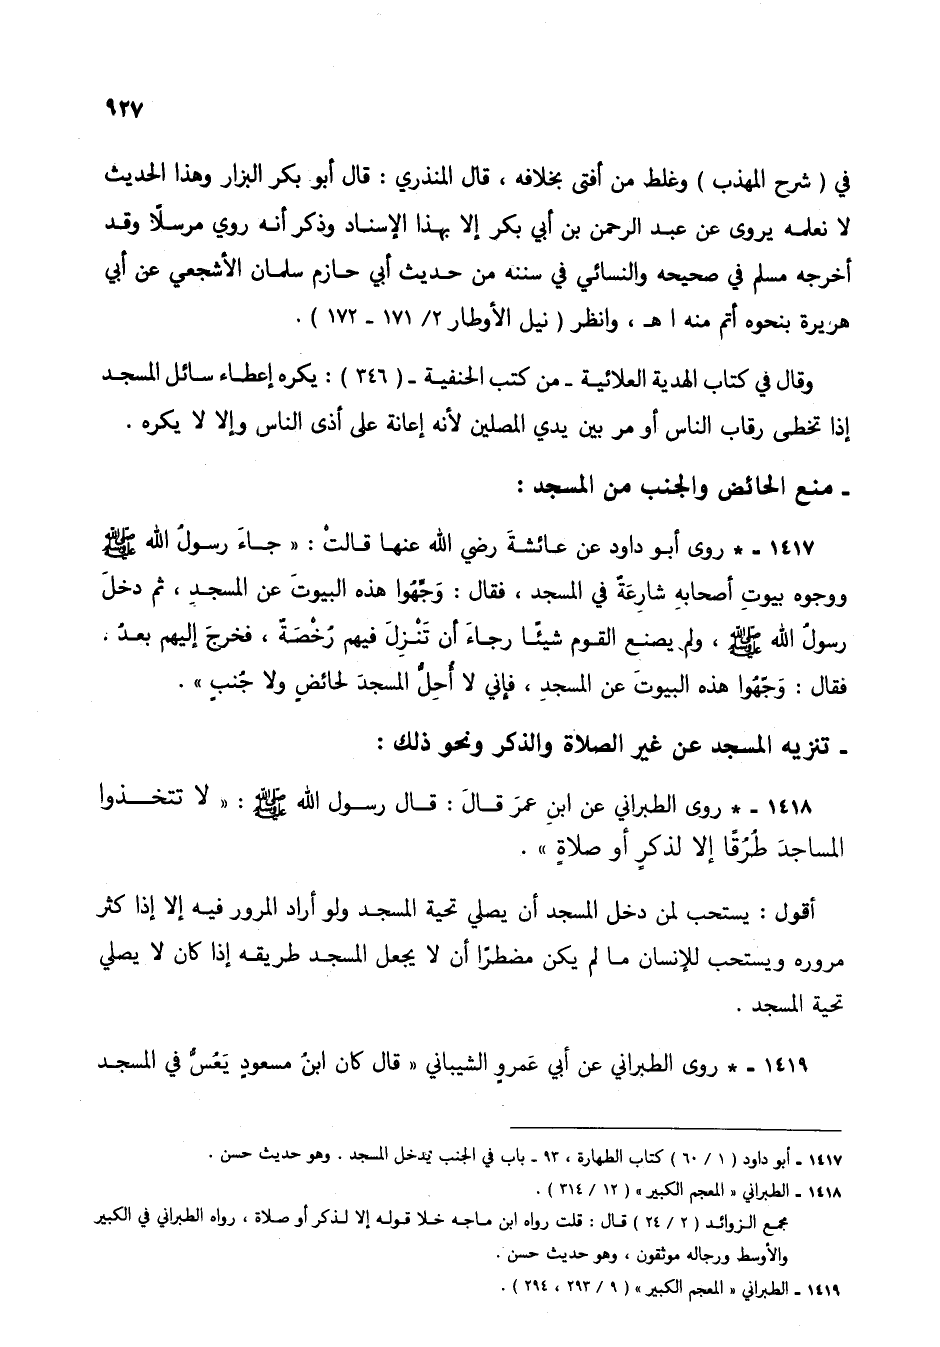 ٩٢٧
في ( شرح المهذب ) وغلط من أفتى بخلافه ، قال المنذري : قال أبو بكر البزار وهذا الحديث
لا نعلمه يروى عن عبد الرحمن بن أبي بكر إلا بهذا الإسناد وذكر أنه روي مرسلًا وقد
أخرجه مسلم في صحيحه والنسائي في سننه من حديث أبي حازم سلمان الأشجعي عن أبي
هريرة بنحوه أتم منه ا هـ ، وانظر ( نيل الأوطار ٢/ ١٧١ ـ ١٧٢ ) .
وقال في كتاب الهدية العلائية ـ من كتب الحنفية ـ ( ٣٤٦ ) : يكره إعطاء سائل المسجد
إذا تخطى رقاب الناس أو مر بين يدي المصلين لأنه إعانة على أذى الناس وإلا لا يكره .
ـ منع الحائض والجنب من المسجد :
١٤١٧ ـ * روى أبو داود عن عائشةَ رضي الله عنها قالتْ : « جاءَ رسولُ الله ﷺ
ووجوه بيوتِ أصحابهِ شارعَةً في المسجد ، فقال : وَجِّهُوا هذه البيوتَ عن المسجدِ ، ثم دخلَ
رسولُ الله ﷺ ، ولم يصنع القوم شيئًا رجاءَ أن تَنْزِلَ فيهم رُخْصَةً ، فخرجَ إليهم بعدُ ،
فقال : وَجِّهُوا هذه البيوتَ عن المسجدِ ، فإني لا أُحِلُّ المسجدَ لحائضٍ ولا جُنبٍ » .
ـ تنزيه المسجد عن غير الصلاة والذكر ونحو ذلك :
١٤١٨ ـ * روى الطبراني عن ابنِ عمرَ قالَ : قال رسول الله ﷺ : « لا تتخذوا
المساجدَ طُرُقًا إلا لذكرٍ أو صلاةٍ » .
أقول : يستحب لمن دخل المسجد أن يصلي تحية المسجد ولو أراد المرور فيه إلا إذا كثر
مروره ويستحب للإنسان ما لم يكن مضطرًا أن لا يجعل المسجد طريقه إذا كان لا يصلي
تحية المسجد .
١٤١٩ ـ * روى الطبراني عن أبي عَمرو الشيباني « قال كان ابنُ مسعودٍ يَعُسُّ في المسجد
١٤١٧ ـ أبو داود ( ١ / ٦٠ ) كتاب الطهارة ، ٩٣ ـ باب في الجنب يدخل المسجد . وهو حديث حسن .
١٤١٨ ـ الطبراني « المعجم الكبير » ( ١٢ / ٣١٤ ) .
مجمع الزوائد ( ٢ / ٢٤ ) قال : قلت رواه ابن ماجه خلا قوله إلا لذكر أو صلاة ، رواه الطبراني في الكبير
والأوسط ورجاله موثقون ، وهو حديث حسن .
١٤١٩ ـ الطبراني « المعجم الكبير » ( ٩ / ٢٩٣ ، ٢٩٤ ) .